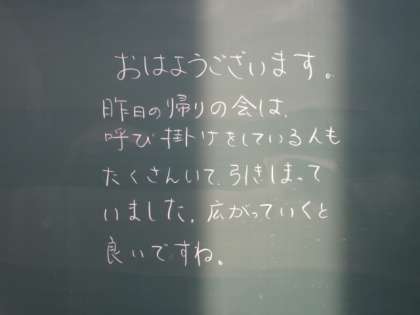 おはようございます。
昨日の帰りの会は、
呼び掛けをしている人も
たくさんいて、引きしまって
いました。広がっていくと
良いですね。